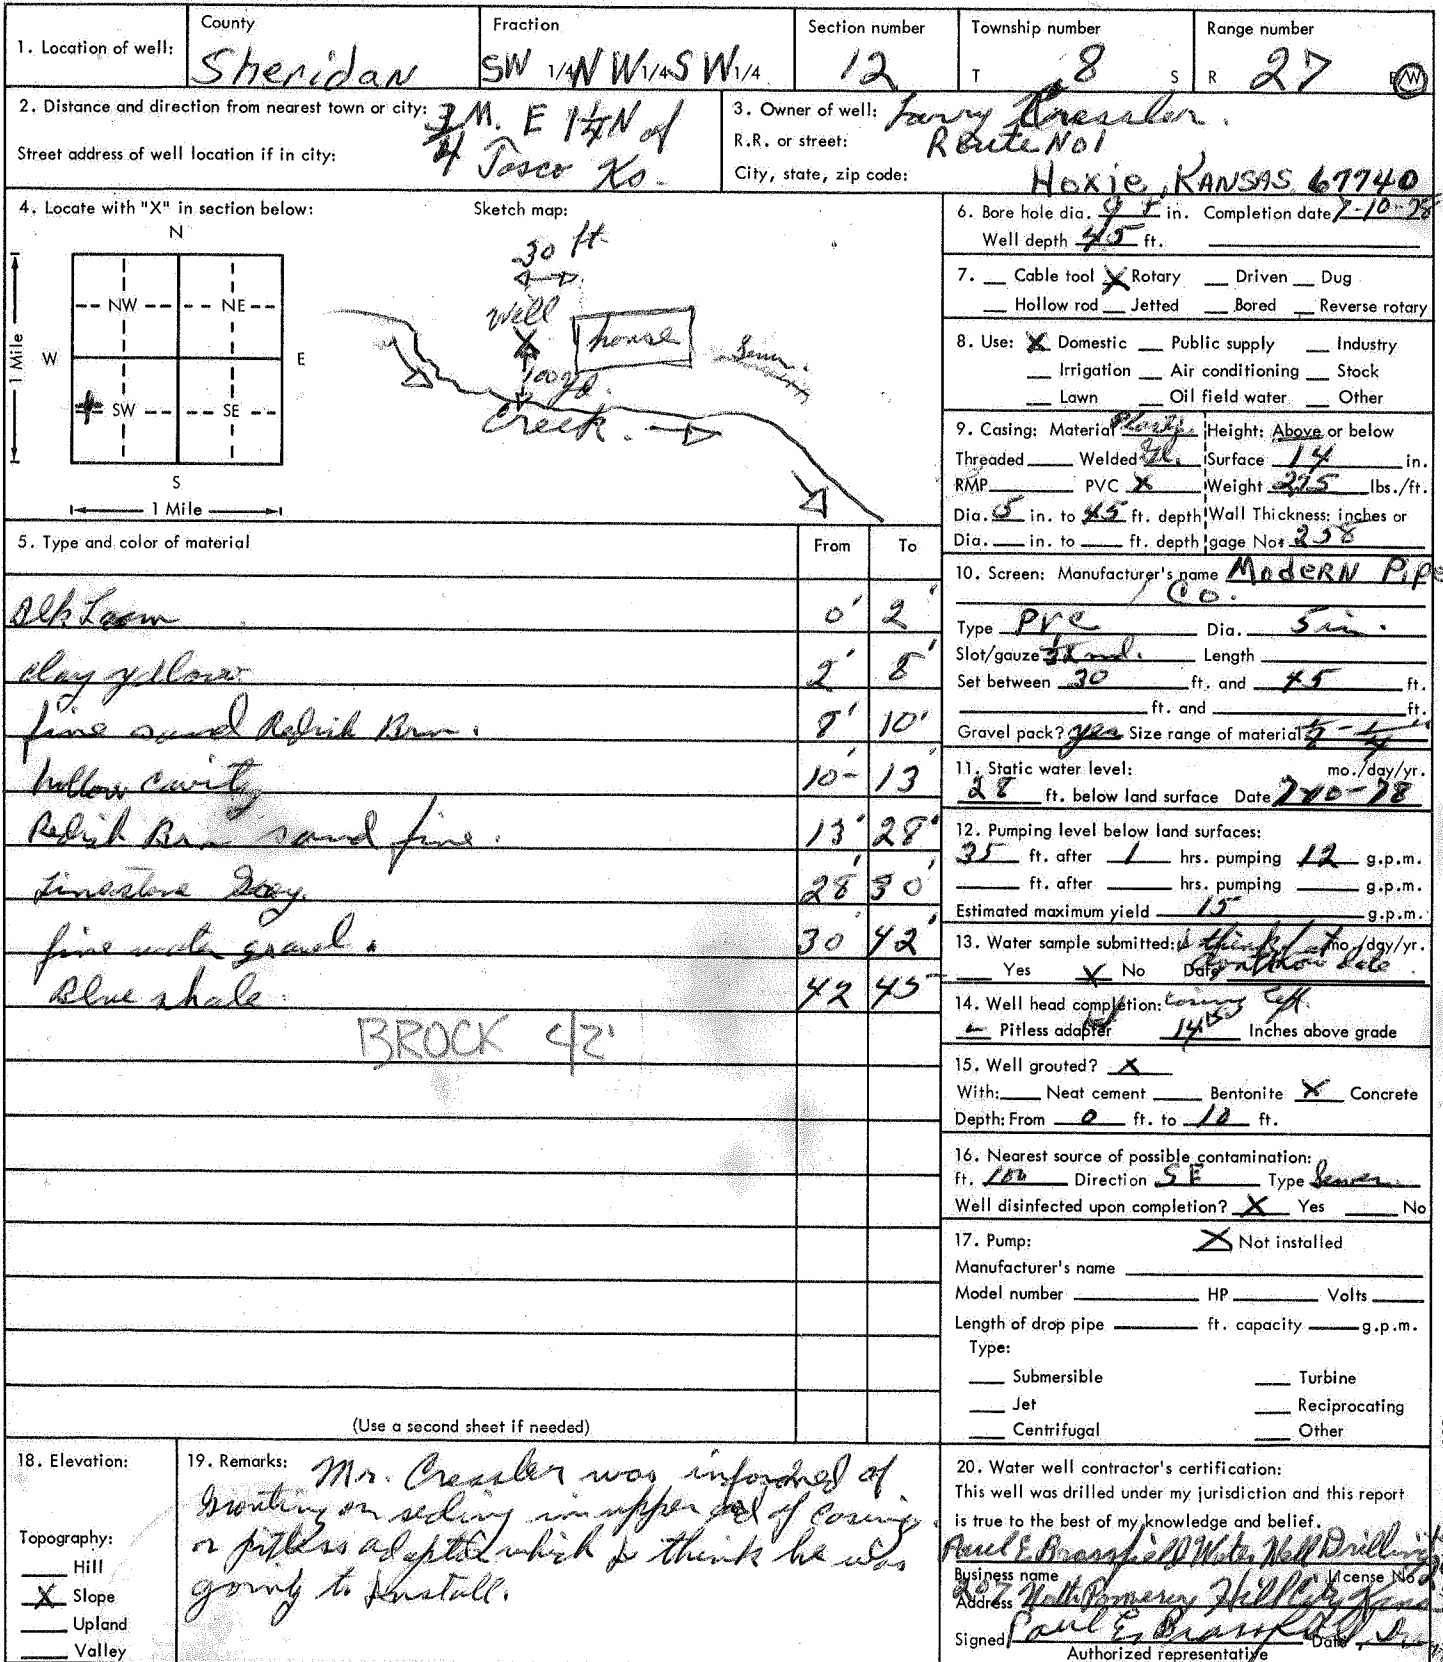 1. Location of well:
County
Sheridan
Fraction
SW 1/4 NW 1/4 SW 1/4
Section number
12
Township number
T 8 S
Range number
R 27 E W
2. Distance and direction from nearest town or city: 3/4 M. E 1 1/4 N of
Street address of well location if in city: Tasco Ks.
3. Owner of well: Larry Cressler.
R.R. or street: Route No 1
City, state, zip code: Hoxie, KANSAS 67740
4. Locate with "X" in section below:
N
NW NE
W E
SW SE
S
1 Mile
1 Mile
Sketch map:
30 ft.
Well
X
house
100 yd.
Creek.
5. Type and color of material From To
Blk Loam 0' 2'
clay yellow 2' 8'
fine sand Redish Brn. 8' 10'
hollow cavity 10- 13'
Redish Brn sand fine. 13' 28'
Limestone Gray. 28' 30'
fine water gravel. 30 42'
Blue shale 42 45
BROCK 42'
(Use a second sheet if needed)
6. Bore hole dia. 9 in. Completion date 7-10-78
Well depth 45 ft.
7. Cable tool X Rotary Driven Dug
Hollow rod Jetted Bored Reverse rotary
8. Use: X Domestic Public supply Industry
Irrigation Air conditioning Stock
Lawn Oil field water Other
9. Casing: Material Plastic Height: Above or below
Threaded Welded Surface 14 in.
RMP PVC X Weight 275 lbs./ft.
Dia. 5 in. to 45 ft. depth Wall Thickness: inches or
Dia. in. to ft. depth gage No. 258
10. Screen: Manufacturer's name MODERN PIPE
Co.
Type PVC Dia. 5 in.
Slot/gauze Length
Set between 30 ft. and 45 ft.
ft. and ft.
Gravel pack? yes Size range of material
11. Static water level: mo./day/yr.
28 ft. below land surface Date 7-10-78
12. Pumping level below land surfaces:
35 ft. after 1 hrs. pumping 12 g.p.m.
ft. after hrs. pumping g.p.m.
Estimated maximum yield 15 g.p.m.
13. Water sample submitted: mo./day/yr.
Yes X No Date
14. Well head completion: casing left.
Pitless adapter 14 Inches above grade
15. Well grouted? X
With: Neat cement Bentonite X Concrete
Depth: From 0 ft. to 10 ft.
16. Nearest source of possible contamination:
ft. 100 Direction SE Type Sewer
Well disinfected upon completion? X Yes No
17. Pump: X Not installed
Manufacturer's name
Model number HP Volts
Length of drop pipe ft. capacity g.p.m.
Type:
Submersible Turbine
Jet Reciprocating
Centrifugal Other
18. Elevation:
Topography:
Hill
X Slope
Upland
Valley
19. Remarks: Mr. Cressler was informed of
grouting or sealing in upper end of casing
or pitless adapter which I think he was
going to install.
20. Water well contractor's certification:
This well was drilled under my jurisdiction and this report
is true to the best of my knowledge and belief.
Paul E Brassfield Water Well Drilling
Business name License No.
Address 207 North Pomeroy Hill City Kans
Signed Paul E. Brassfield Date
Authorized representative